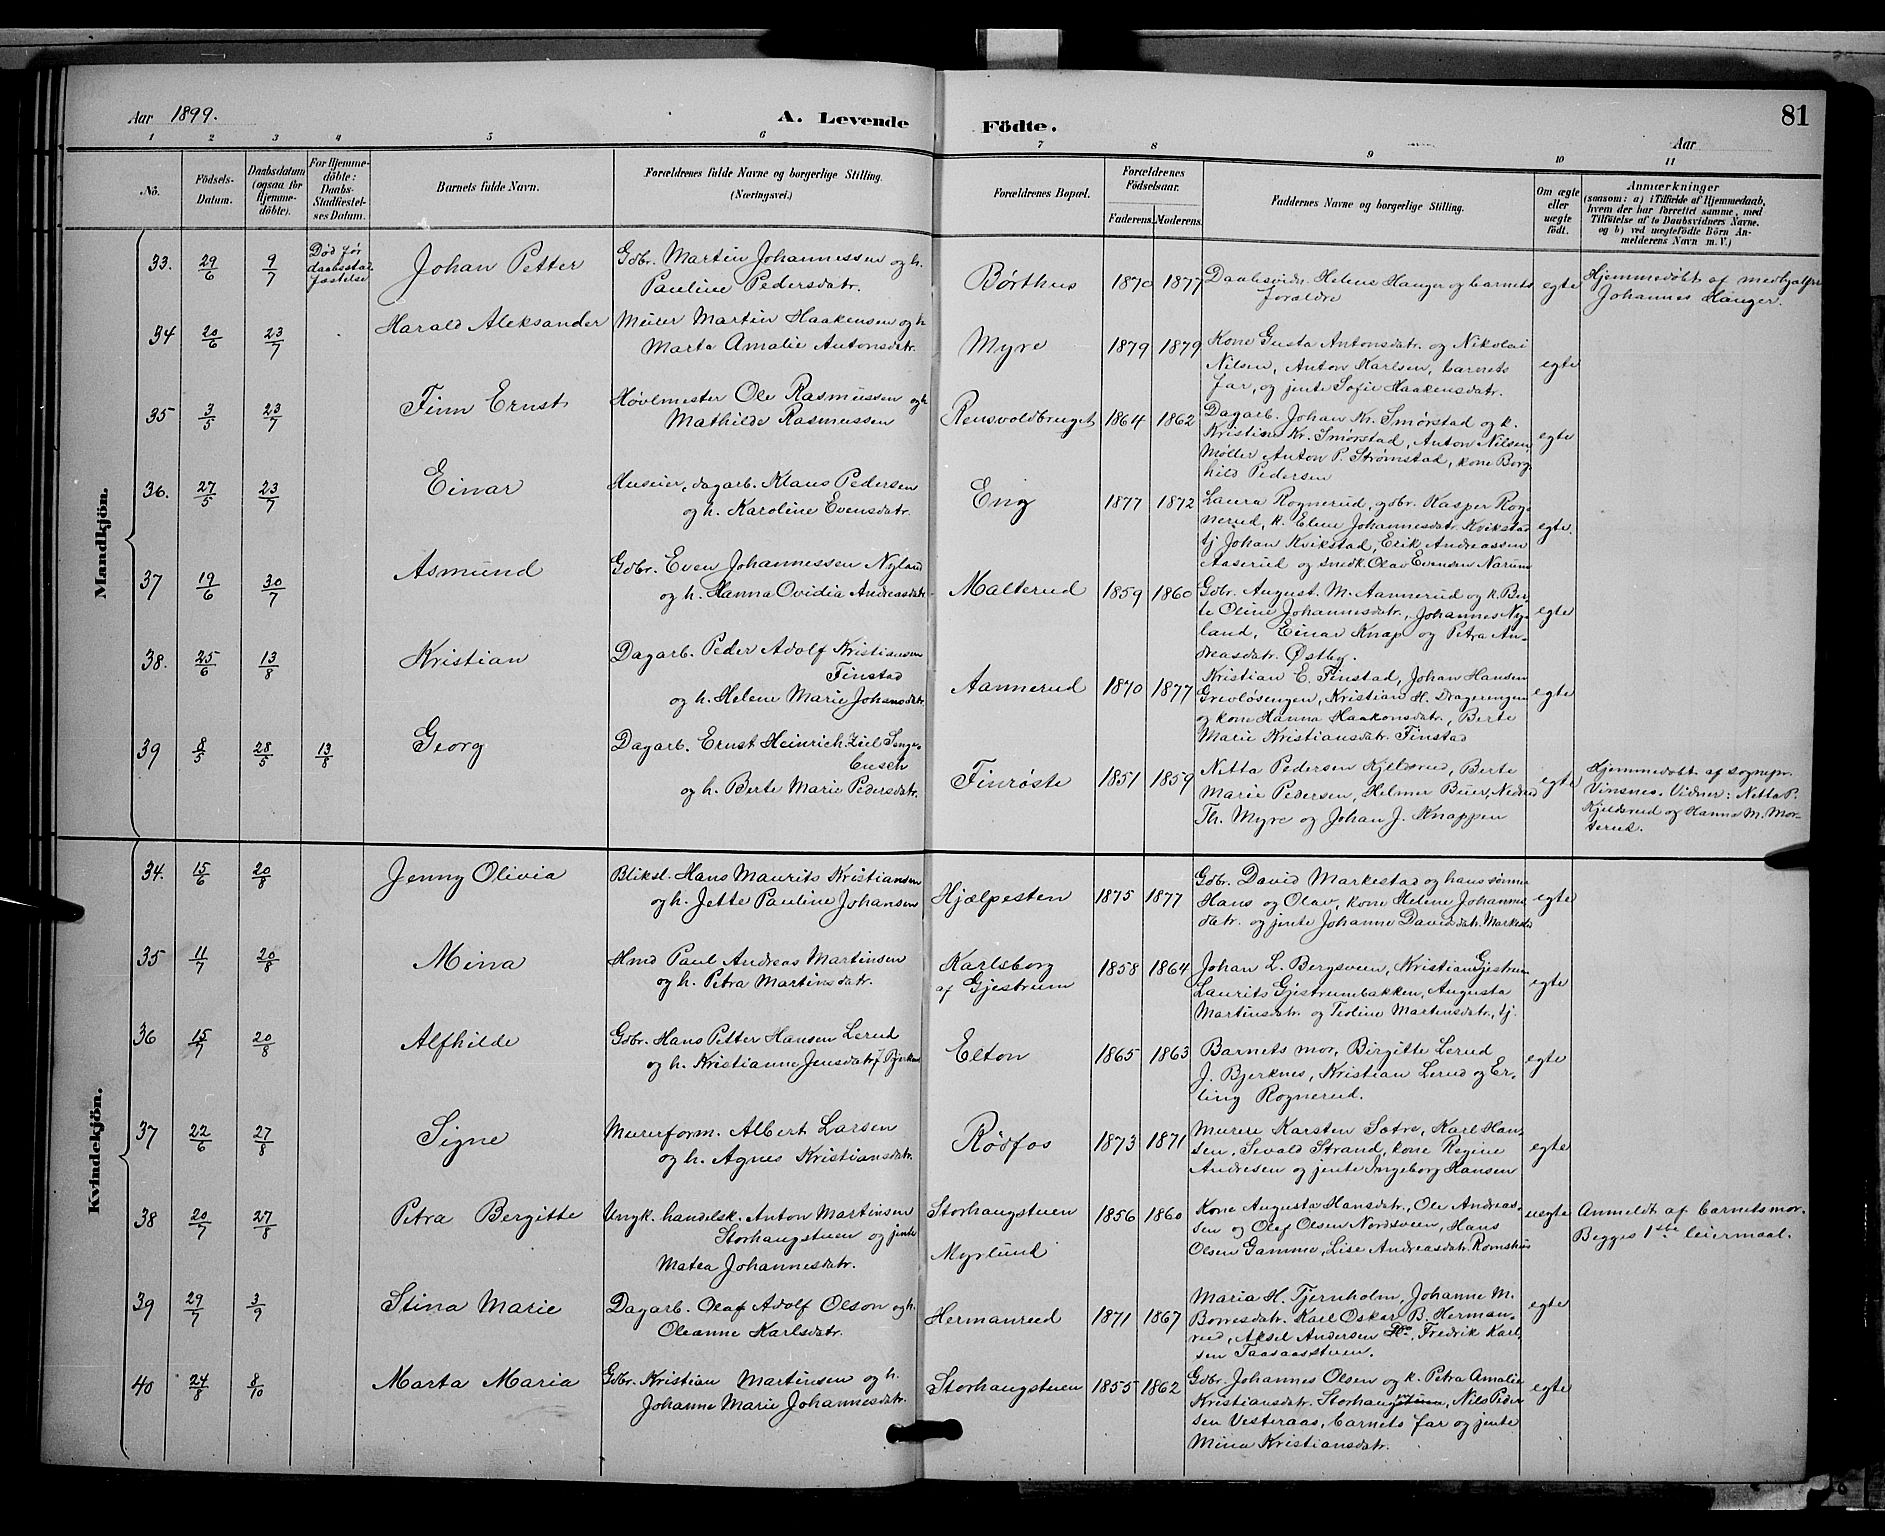 Aar 1899.
A. Levende Födte.
Aar
81
1 2 3 4 5 6 7 8 9 10 11
No.
Födsels-Datum.
Daabsdatum (ogsaa for Hjemme-döbte).
For Hjemme-döbte: Daabs-Stadfæstel-ses Datum.
Barnets fulde Navn.
Forældrenes fulde Navne og borgerlige Stilling. (Næringsvei.)
Forældrenes Bopæl.
Forældrenes Födselsaar.
Faderens. Moderens.
Faddernes Navne og borgerlige Stilling.
Om ægte eller uægte födt.
Anmærkninger
(saasom: a) i Tilfælde af Hjemmedaab,
hvem der har forrettet samme, med
Tilföielse af to Daabsvidners Navne.
og b) ved uægtefödte Börn An-
melderens Navn m. V.)
Mandkjön.
33. 29/6 9/7 Död før daabsstad fæstelse
Johan Petter
Gdbr. Martin Johannessen og h.
Pauline Pedersdatr.
Børthus 1870 1877
Daabsvidn. Helene Hanger og barnets
foraldre
egte
Hjemmedøbt af medhjælper
Johannes Hanger.
34 20/6 23/7
Harald Aleksander
Meier Martin Haakensen og h
Marta Amalie Antonsdatr.
Myre 1879 1879
Kone Gusta Antonsdatr. og Nikolai
Nilsen, Anton Karlsen, barnets
far, og jente Sofie Haakensdatr.
egte
35 3/5 23/7
Finn Ernst
Høvlmester Ole Rasmussen og h
Mathilde Rasmussen
Rensvoldbruget 1864 1862
Dagarb. Johan Kr. Smørstad og k.
Kristine Kr. Smørstad, Anton Nilsen
Møller Anton P. Strømstad, kone Borg
hild Pedersen
egte
36. 27/5 23/7
Einar
Huseier, dagarb. Klaus Pedersen
og h. Karoline Evensdatr.
Eng 1877 1872
Laura Rognerud, gdbr. Kasper Rog
nerud, k. Eline Johannesdatr. Kvikstad
tj Johan Kvikstad, Erik Andreassen
Aaserud og snedk. Olav Evensen Narum
egte.
37 19/6 30/7
Asmund
Gdbr. Even Johannessen Nyland
og h. Hanna Ovidia Andreasdatr.
Malterud 1859 1860
Gdbr. August M. Aannerud og k. Ber
te Oline Johannesdatr., Johannes Ny-
land, Einar Knap og Petra An-
dreasdatr. Østby.
egte
38. 25/6 13/8
Kristian
Dagarb. Peder Adolf Kristiansen
Finstad
og h. Helene Marie Johansdatr.
Aannerud 1870 1877
Kristian E. Finstad, Johan Hansen
Grevløsengen, Kristian H. Drageringen
og kone Hanna Haakonsdatr., Berte
Marie Kristiansdatr. Finstad
egte
39 8/5 28/5 13/8
Georg
Dagarb. Ernst Heinrich
og h. Berte Marie Pedersdatr.
Finrøste 1851 1859
Netta Pedersen Kjeldsrud, Berte
Marie Pedersen, Helmer Buer, Nedrud
Th. Myre og Johan J. Knappen
egte
Hjemmedøbt af sognepr.
Vinsnes. Vidner: Netta P.
Kjeldsrud og Hanna M. Mor-
terud.
Kvindekjön.
34. 15/6 20/8
Jenny Olivia
Bliksl. Hans Maurits Kristiansen
og h. Jette Pauline Johansen
Hjælpesten 1875 1877
Gdbr. David Markestad og hans sønner
Hans og Olav, kone Helene Johanne
datr. og jente Johanne Davidsdatr. Markestad
egte
35 11/7 20/8
Mina
Hmd Paul Andreas Martinsen
og h. Petra Martinsdatr.
Karlsborg
af Gjestrum
1858 1864
Johan L. Bergsveen, Kristian Gjestrum
Laurits Gjestrumbakken, Augusta
Martinsdatr. og Teoline Martinsdatr., tj.
egte
36 15/7 20/8
Alfhilde
Gdbr. Hans Petter Hansen Lerud
og h. Kristianne Jensdatr. f. Bjerknes
Elton 1865 1863
Barnets mor, Birgitte Lerud
J. Bjerknes, Kristian Lerud og Er-
ling Rognerud.
egte
37 22/6 27/8
Signe
Murerform. Albert Larsen
og h. Agnes Kristiansdatr.
Rødfos 1873 1871
Murere Karsten Sætre, Karl Han-
sen, Sevald Strand, kone Regine
Andresen og jente Ingeborg Hansen
egte
38 20/7 27/8
Petra Bergitte
Ungk. handelsk. Anton Martinsen
Storhaugstuen og jente
Matea Johannesdatr.
Storhaugstuen
Myrlund
1856 1860
Kone Augusta Hansdatr., Ole Andreas-
sen og Olef Olsen Nordsveen, Hans
Olsen Gamme, Lise Andreasdatr. Romshus
uegte
Anmeldt af barnets mor.
Begges 1ste leiermaal.
39 29/7 3/9
Stina Marie
Dagarb. Olaf Adolf Olson og h.
Oleanne Karlsdatr.
Hermanrud 1871 1867
Maria H. Tjernholm, Johanne M.
Borresdatr. Karl Oskar B. Herman-
rud, Aksel Andersen Do, Fredrik Karl-
sen Taasaasstuen.
egte
40 24/8 8/10
Marta Maria
Gdbr. Kristian Martinsen og h.
Johanne Marie Johannesdatr.
Storhaugstuen 1855 1862
Gdbr. Johannes Olsen og k. Petra Amalie
Kristiansdatr. Storhaugstuen, Nils Peder
sen Vesteraas, barnets far og jente
Mina Kristiansdatr.
egte